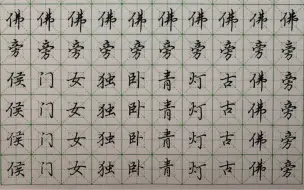 佛佛佛佛佛佛佛佛佛
旁旁旁旁旁旁旁旁旁
侯门女独卧青灯古佛旁
侯门女独卧青灯古佛旁
侯门女独卧青灯古佛旁
侯门女独卧青灯古佛旁